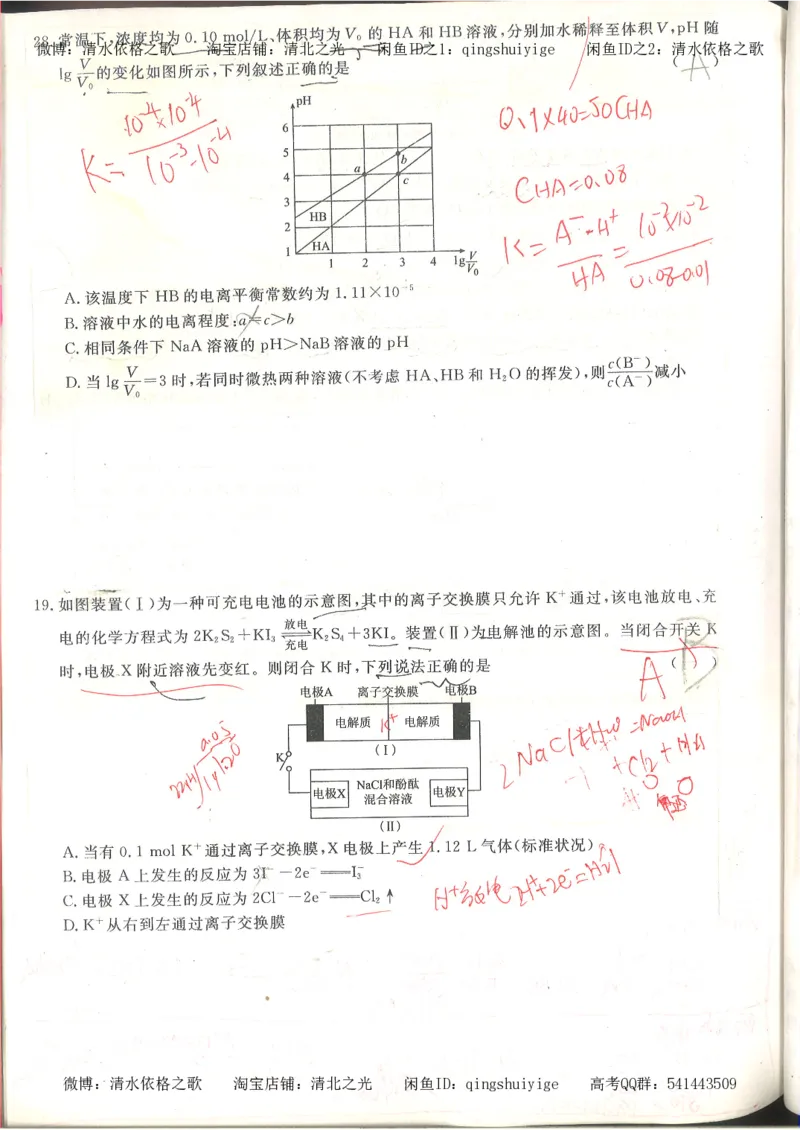 28. 常温下,浓度均为 0.10 mol/L、体积均为 V₀ 的 HA 和 HB 溶液,分别加水稀释至体积 V,pH 随
微博: 清水依格之歌 淘宝店铺: 清北之光 闲鱼ID之1: qingshuiyige 闲鱼ID之2: 清水依格之歌
lg V/V₀ 的变化如图所示,下列叙述正确的是 ( A )
K= 10⁻⁴×10⁻⁴ / 10⁻³-10⁻⁴
pH
6
5
4
3
2
1
a
b
c
HB
HA
1 2 3 4 lg V/V₀
0.1×40=50CHA
CHA=0.08
K= A⁻·H⁺ / HA = 10⁻²×10⁻² / 0.08-0.01
A. 该温度下 HB 的电离平衡常数约为 1.11×10⁻⁵
B. 溶液中水的电离程度:a=c>b
C. 相同条件下 NaA 溶液的 pH>NaB 溶液的 pH
D. 当 lg V/V₀ =3 时,若同时微热两种溶液(不考虑 HA、HB 和 H₂O 的挥发),则 c(B⁻)/c(A⁻) 减小
19. 如图装置(Ⅰ)为一种可充电电池的示意图,其中的离子交换膜只允许 K⁺ 通过,该电池放电、充
电的化学方程式为 2K₂S₂+KI₃ ⇌(放电/充电) K₂S₄+3KI。装置(Ⅱ)为电解池的示意图。当闭合开关 K
时,电极 X 附近溶液先变红。则闭合 K 时,下列说法正确的是 ( )
A
B
电极A 离子交换膜 电极B
电解质 K⁺ 电解质
(Ⅰ)
K
电极X NaCl和酚酞混合溶液 电极Y
(Ⅱ)
A. 当有 0.1 mol K⁺ 通过离子交换膜,X 电极上产生 1.12 L 气体(标准状况)
B. 电极 A 上发生的反应为 3I⁻-2e⁻══I₃⁻
C. 电极 X 上发生的反应为 2Cl⁻-2e⁻══Cl₂↑
2H⁺+2e⁻=H₂↑
D. K⁺ 从右到左通过离子交换膜
微博: 清水依格之歌 淘宝店铺: 清北之光 闲鱼ID: qingshuiyige 高考QQ群: 541443509